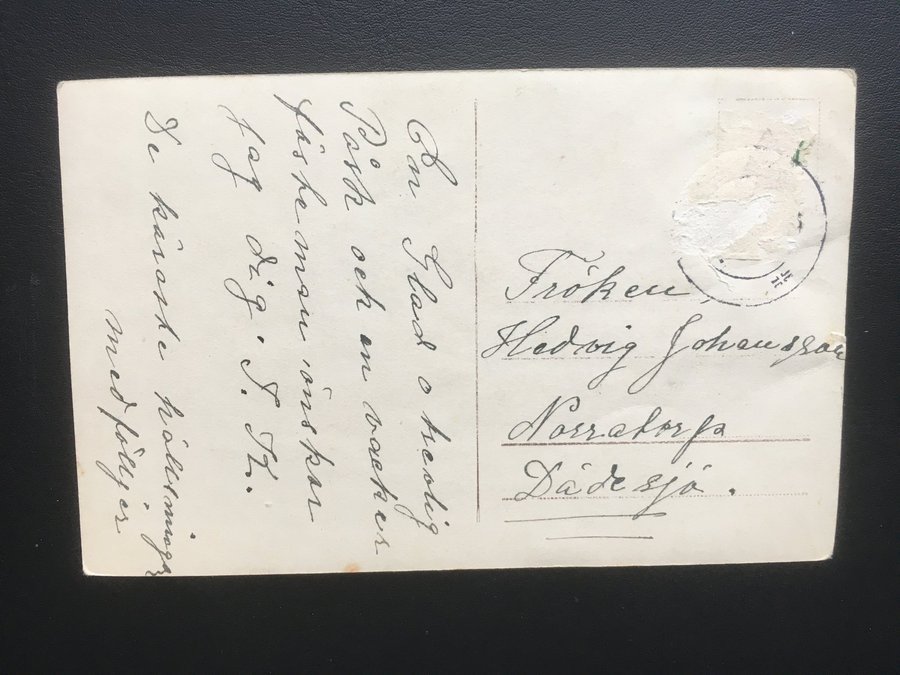 En Glad o treolig
Påsk och en vacker
fästeman önskar
jag dig. T. K.
De käraste hälsningar
medföljer
Fröken,
Hedvig Johansson
Norratorp
Dädesjö.